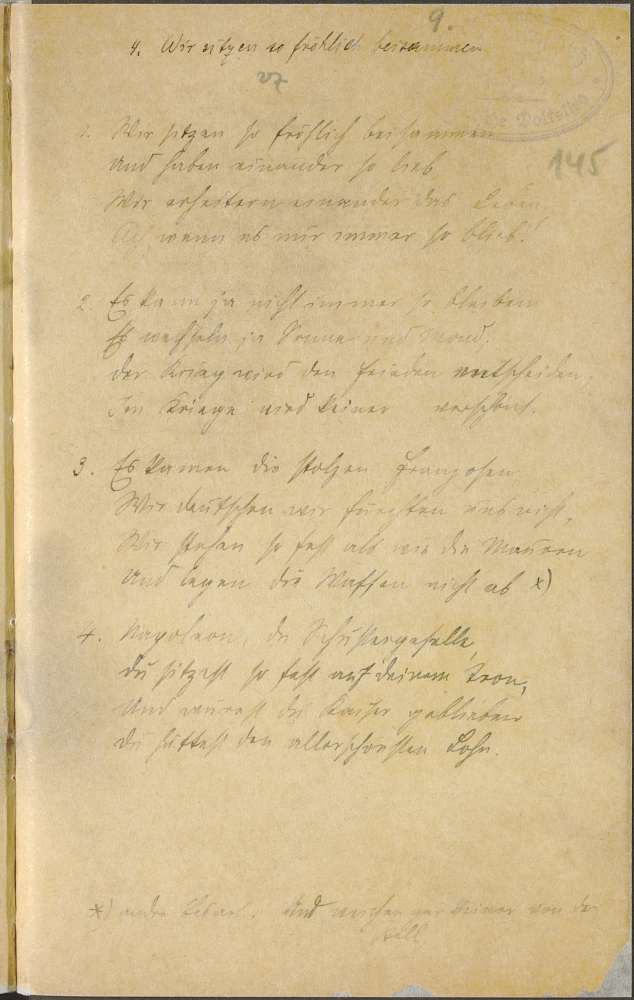 9.
4. Wir sitzen so fröhlich beisammen
27
145
1. Wir sitzen so fröhlich beisammen
Und haben einander so lieb
Wir erheitern einander das Leben,
Ach wenn es nur immer so blieb!
2. Es kann ja nicht immer so bleiben
Es wechseln ja Sonne und Mond.
Der Krieg wird den Frieden entscheiden,
Im Kriege wird keiner verschont.
3. Es kamen die stolzen Franzosen
Wir Deutschen wir fürchten uns nicht,
Wir stehen so fest als wie die Mauren
Und legen die Waffen nicht ab x)
4. Napoleon, du Schustergeselle,
Du sitzest so fest auf deinem Tron,
Und warest du Kaiser geblieben
Du hattest den allerschönsten Lohn.
x) andre Lesart: Und weichen gar keiner von der
Stell